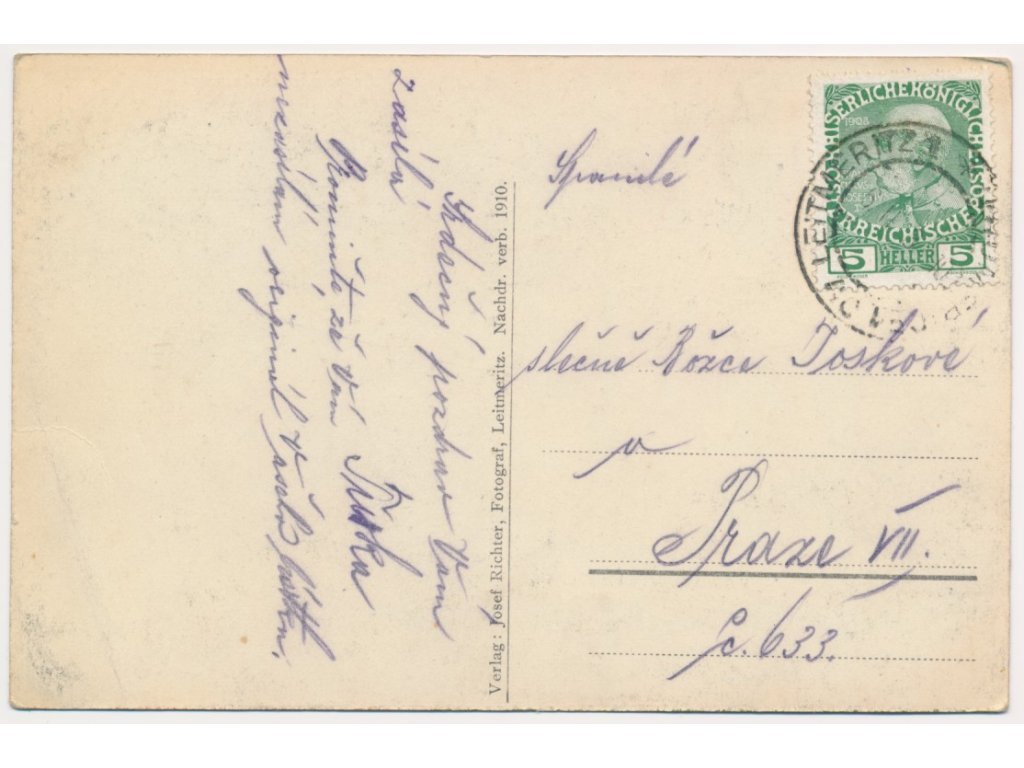 Srdečný pozdrav Vám
zasílá
Truka
Promiňte, že Vám
nezasílám originál V.
Verlag: Josef Richter, Fotograf, Leitmeritz. Nachdr. verb. 1910.
Spanilé
slečně Božce Toskové
v
Praze VII.
č. 633.
KAISERLICHE KÖNIGLICHE ÖSTERREICHISCHE POST
1908
5 HELLER 5
LEITMERITZ 1